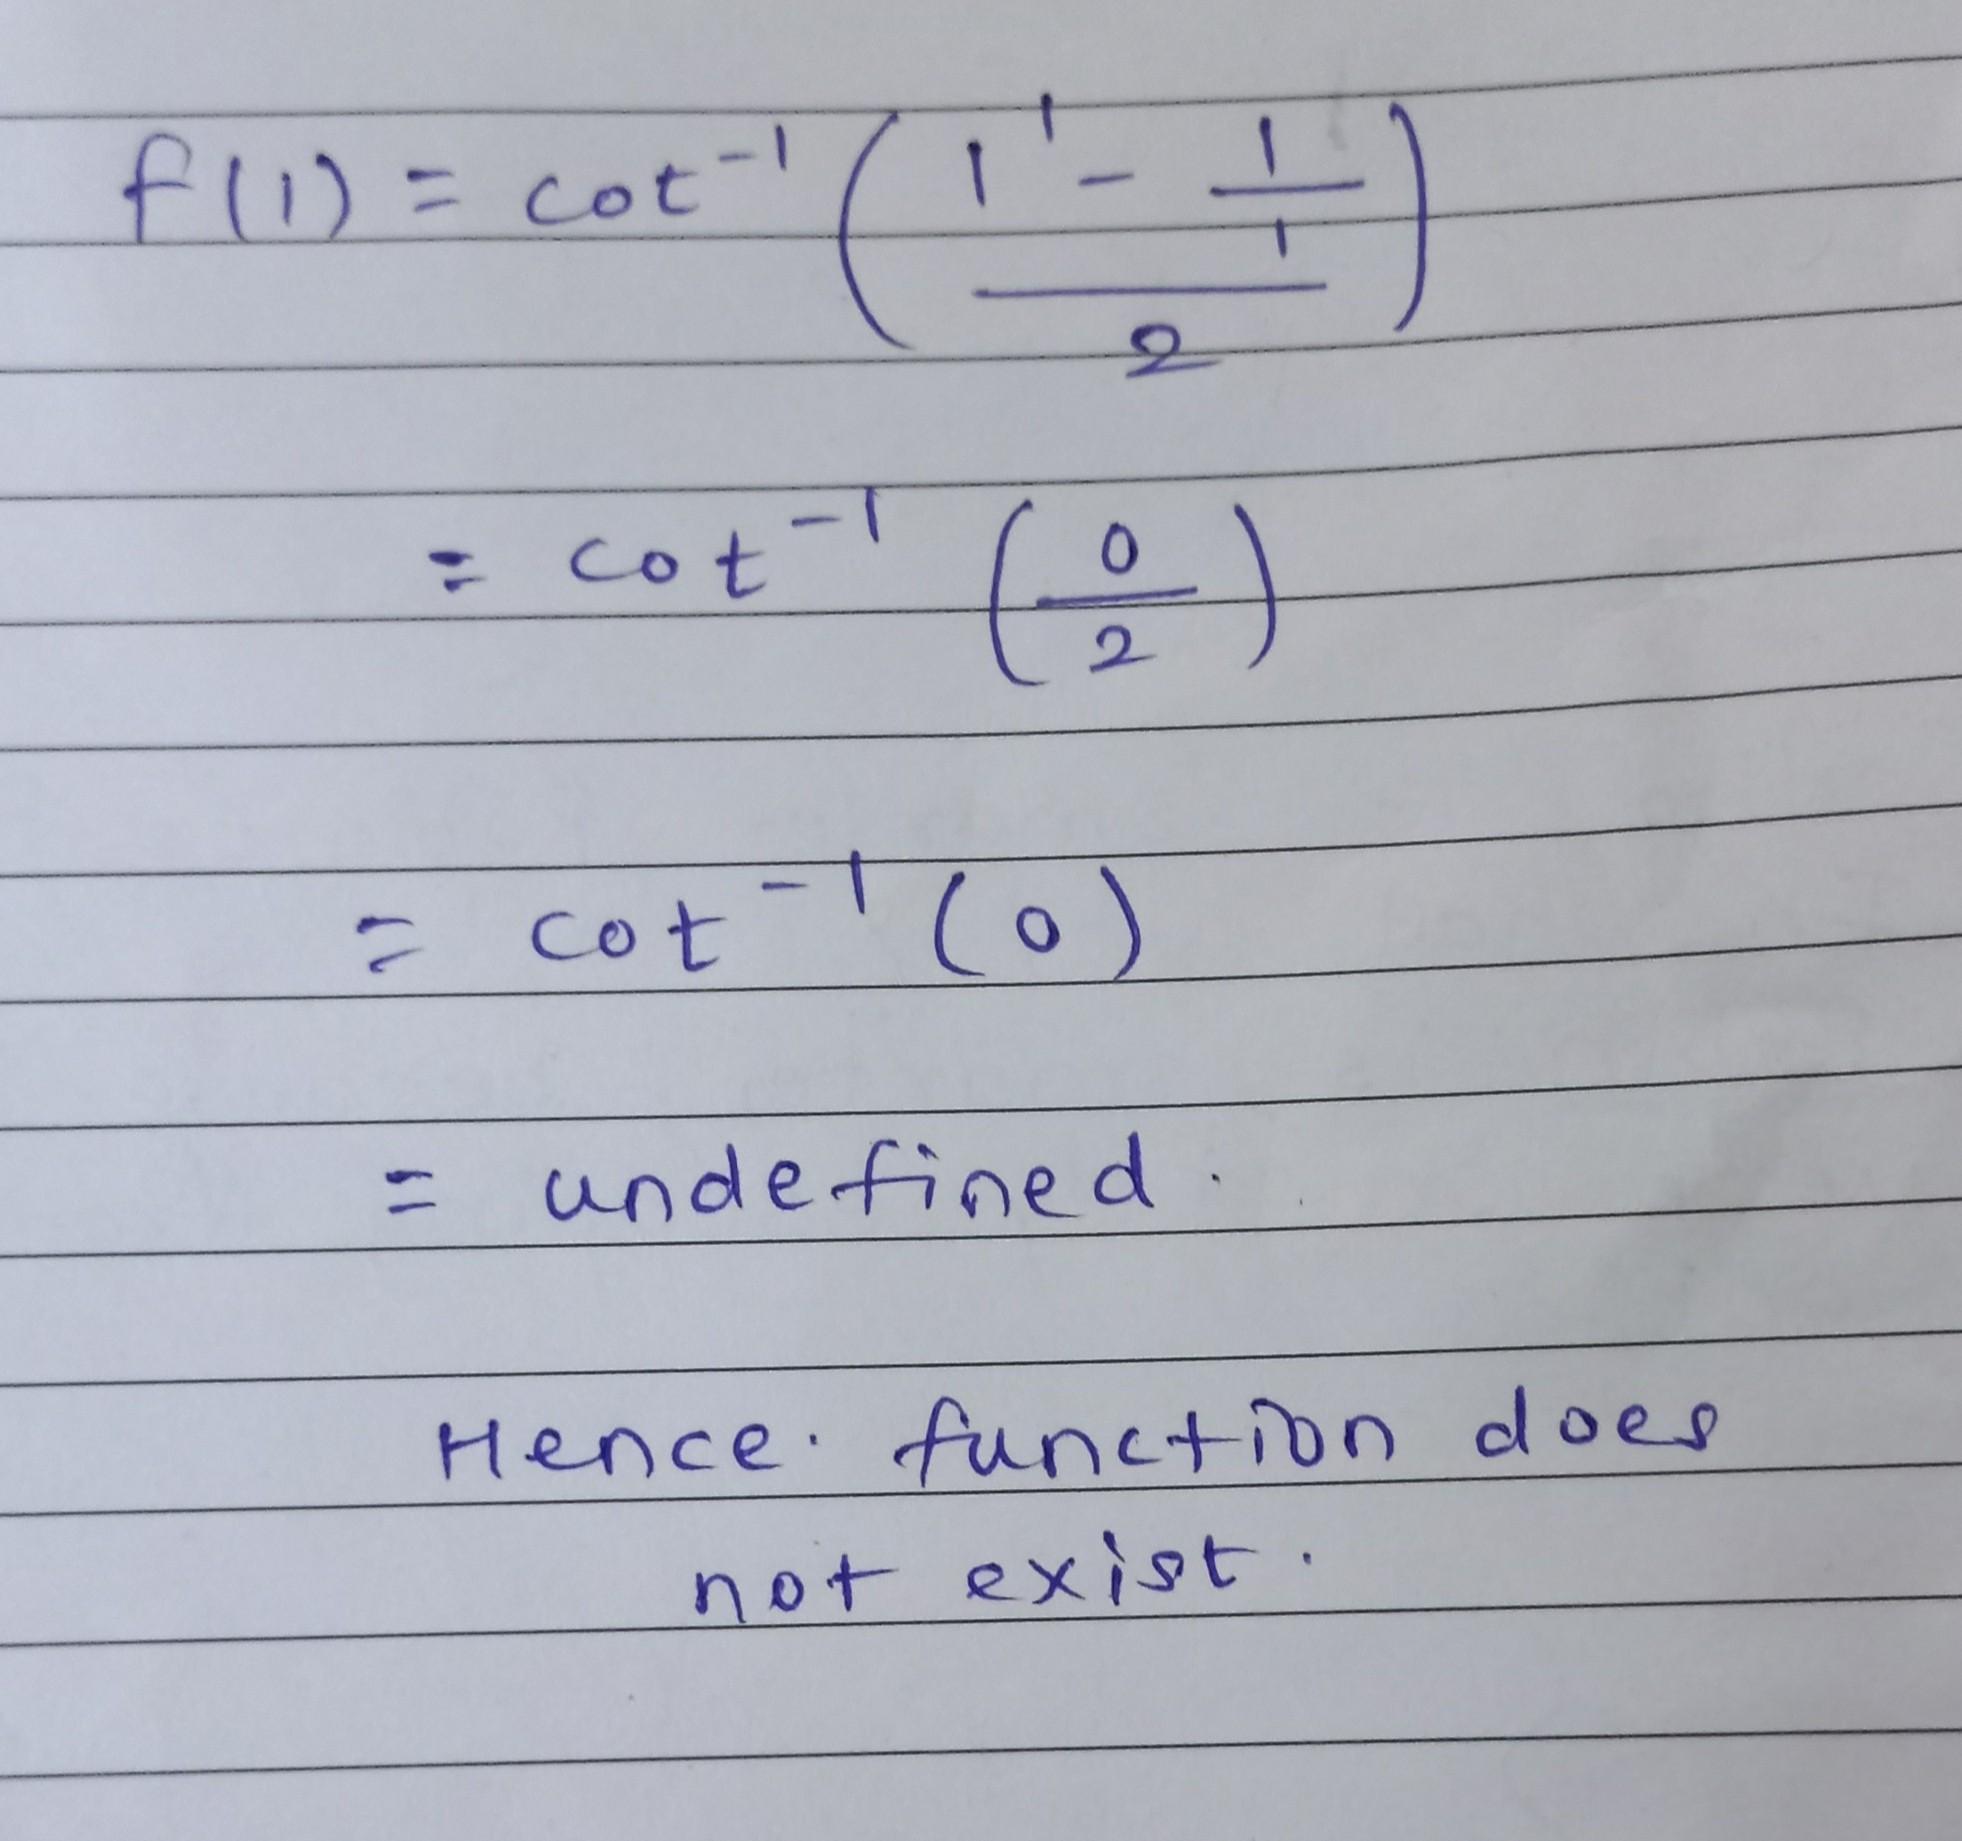 f(1) = cot⁻¹ ( (1¹ - 1/1) / 2 )
= cot⁻¹ ( 0/2 )
= cot⁻¹ (0)
= undefined.
Hence. function does
not exist.